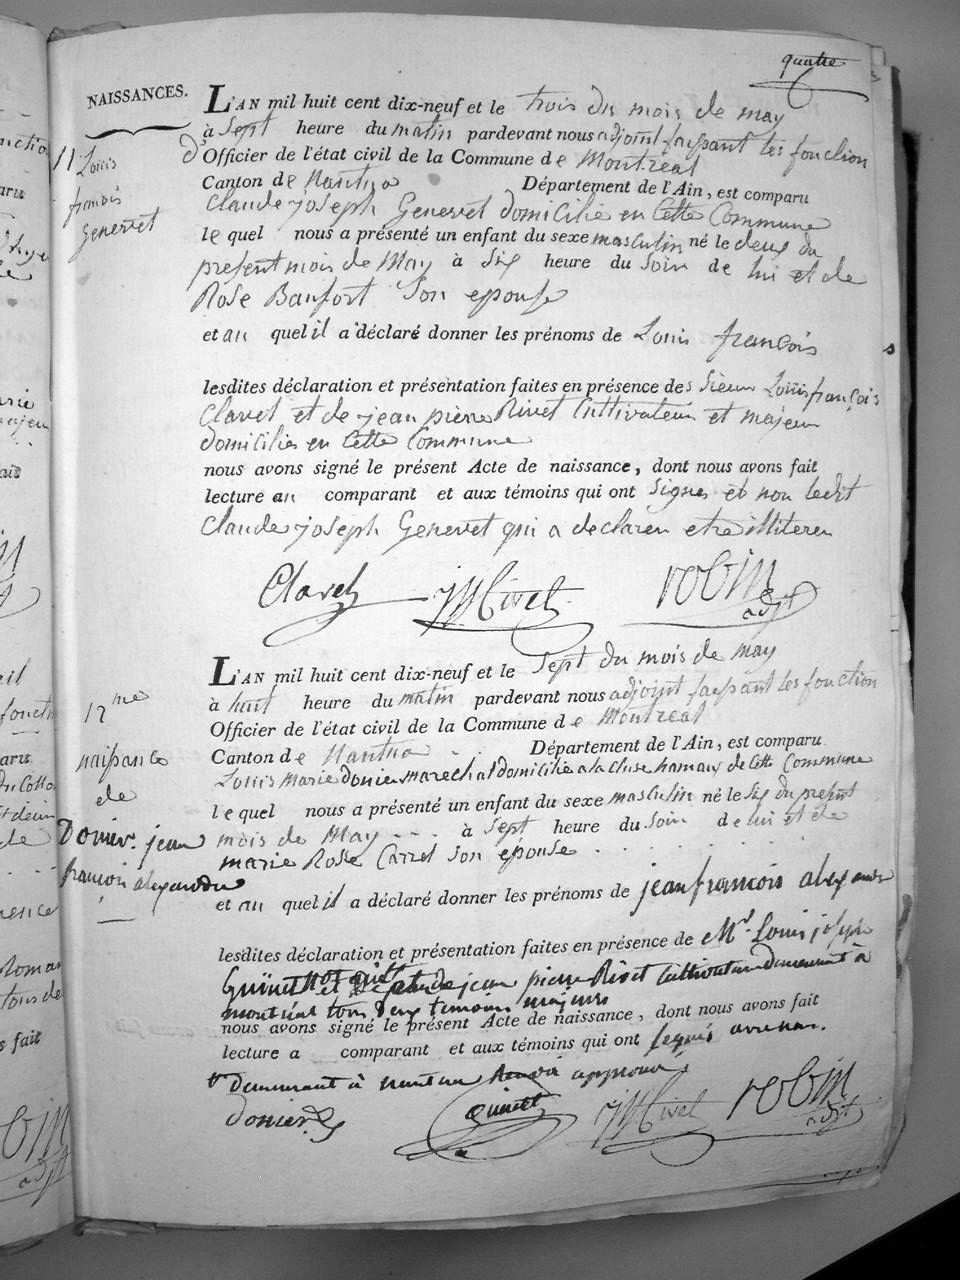 quatre
NAISSANCES.
11
Louis
françois
Genevret
L'AN mil huit cent dix-neuf et le trois du mois de may
à Sept heure du matin pardevant nous adjoint faisant les fonction
d'Officier de l'état civil de la Commune de Montreal
Canton de Nantua Département de l'Ain, est comparu
Claude joseph Genevret domicilié en Cette Commune
le quel nous a présenté un enfant du sexe masculin né le deux du
present mois de May à Six heure du Soir de lui et de
Rose Banfort Son epouse
et au quel il a déclaré donner les prénoms de Louis françois
lesdites déclaration et présentation faites en présence des Sieur Louis françois
Clavel et de jean pierre Rivet Cultivateur et majeur
domiciliés en Cette Commune
nous avons signé le présent Acte de naissance, dont nous avons fait
lecture au comparant et aux témoins qui ont Signés et non ledit
Claude joseph Genevret qui a declaren etre illiteren
Clavel JP Rivet robin
adjt
12me
naissance
de
Donier jean
françois alexandre
L'AN mil huit cent dix-neuf et le Sept du mois de may
à huit heure du matin pardevant nous adjoint faisant les fonction
Officier de l'état civil de la Commune de Montreal
Canton de Nantua Département de l'Ain, est comparu
Louis Marie donier marechal domicilié a la Cluse hamaux de Cette Commune
le quel nous a présenté un enfant du sexe masculin né le Six du présent
mois de May à Sept heure du Soir de lui et de
marie Rose Carrel Son epouse
et au quel il a déclaré donner les prénoms de jean francois alexandre
lesdites déclaration et présentation faites en présence de Mr Louis joseph
Guinet et de jean pierre Rivet Cultivateur demeurant à
montréal tous deux temoins majeurs
nous avons signé le présent Acte de naissance, dont nous avons fait
lecture a comparant et aux témoins qui ont signés
demeurant à nantua approuvé
donier guinet JP Rivet robin
adjt